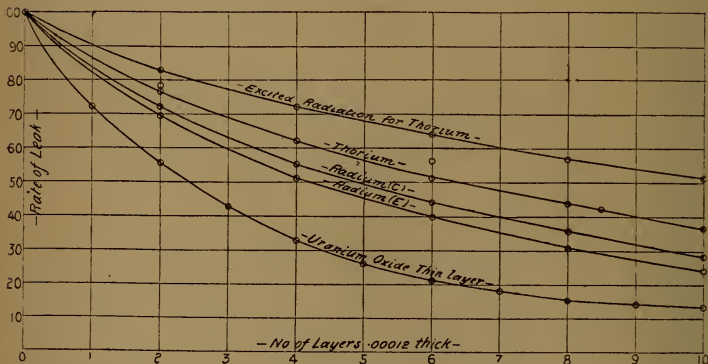 100
90
80
70
60
50
40
30
20
10
0
—Rate of Leak—
—Excited Radiation for Thorium—
—Thorium—
—Radium(C)—
—Radium(E)—
—Uranium Oxide Thin layer—
—No of Layers .00012 thick—
0 1 2 3 4 5 6 7 8 9 10